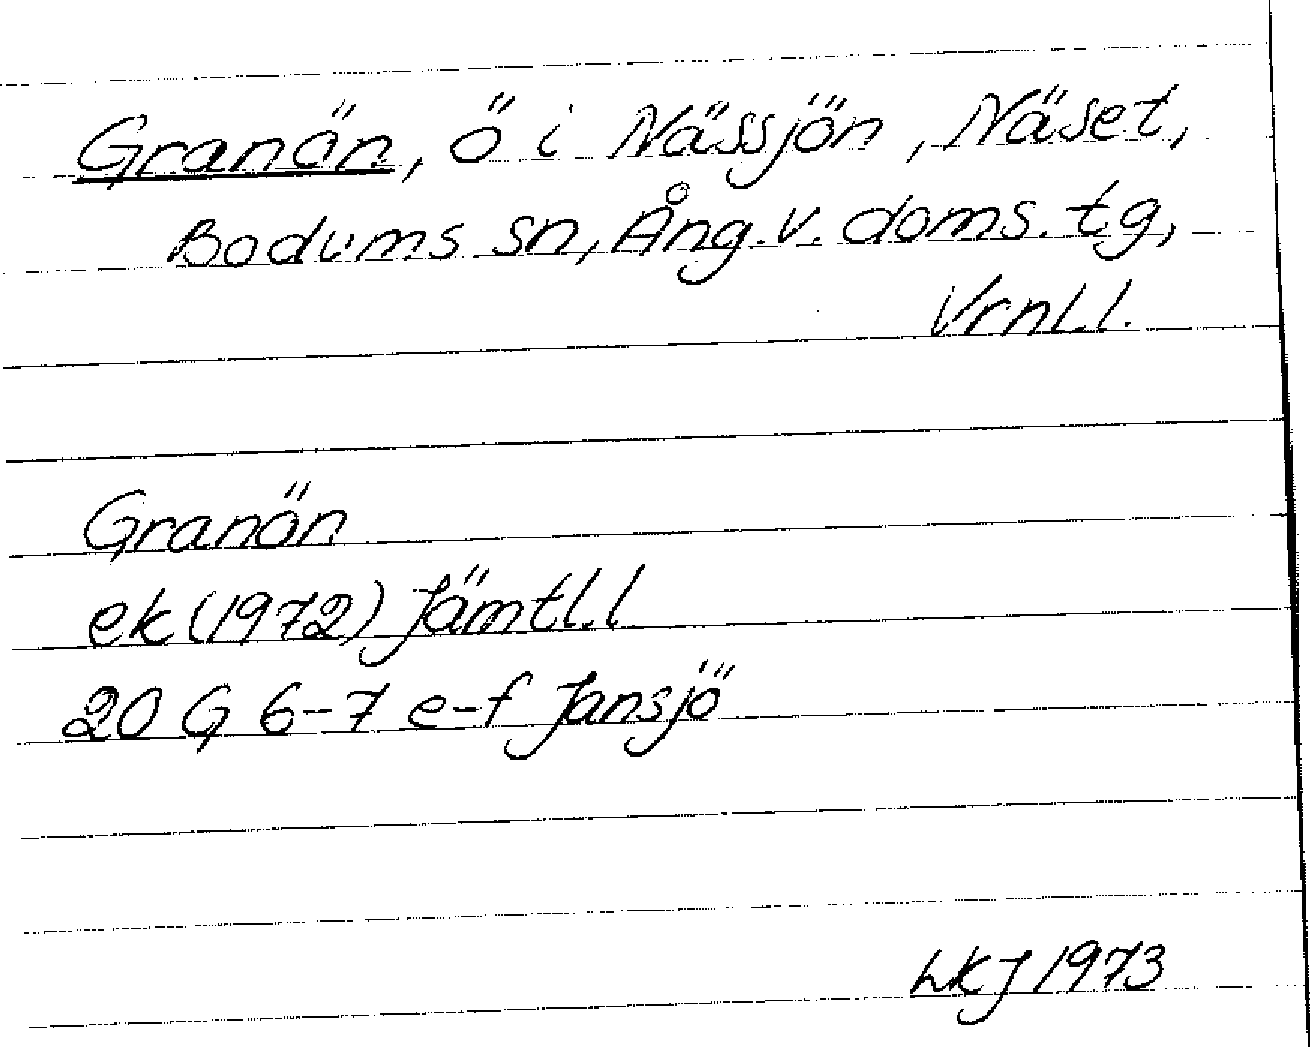 Granön, ö i Nässjön, Näset,
Bodums sn, Ång. v. doms. tg,
Vrnl.l.
Granön
ek (1972) Jämtl.l
20 G 6-7 e-f Jansjö
LKJ 1973